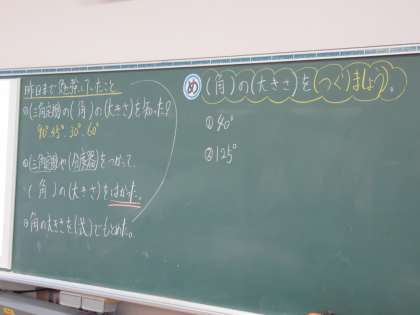 昨日まで勉強していたこと
①(三角定規)の(角)の(大きさ)を知った。
90° 45°・30°・60°
②(三角定規)や(分度器)をつかって、
(角)の(大きさ)をはかった。
③角の大きさを(式)でもとめた。
め (角)の(大きさ)を(つくりましょう)。
①40°
②125°